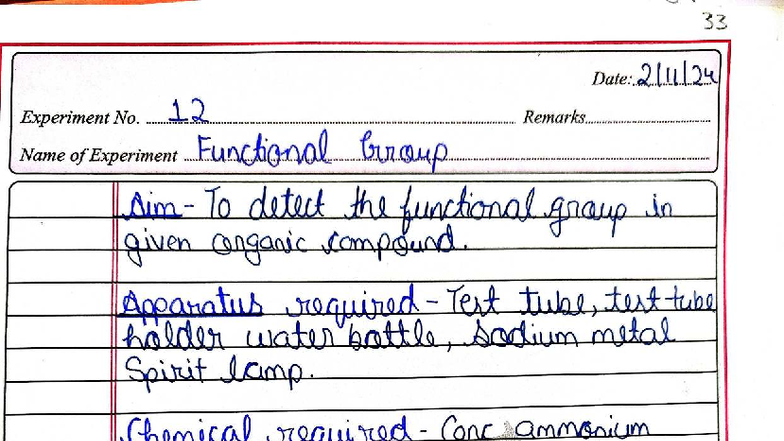 33
Date: 2/11/24
Experiment No. 12 Remarks
Name of Experiment Functional Group
Aim - To detect the functional group in
given organic compound.
Apparatus required - Test tube, test-tube
holder water bottle, sodium metal
Spirit lamp.
Chemical required - Conc ammonium